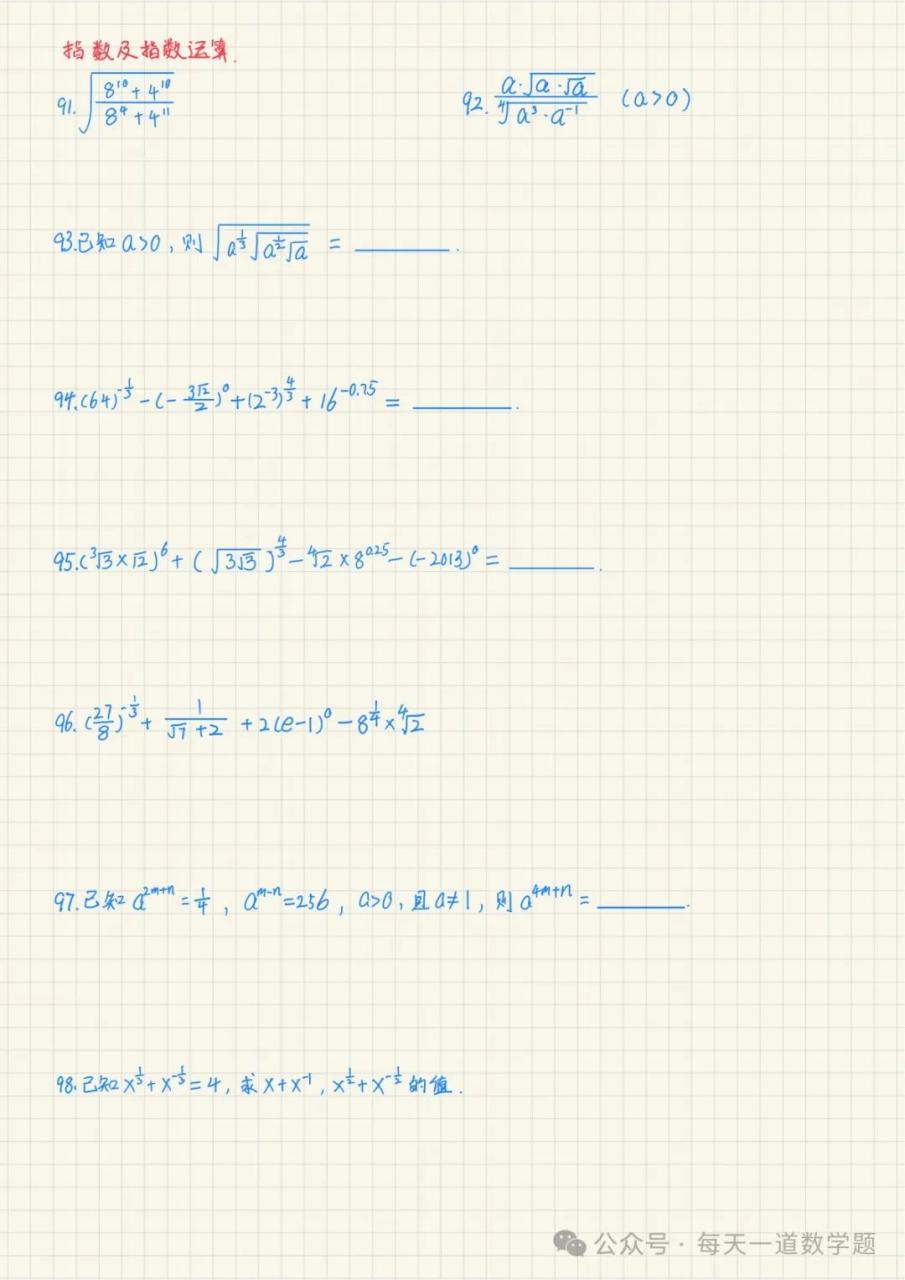 指数及指数运算.
91. √((8¹⁰ + 4¹⁰)/(8⁴ + 4¹¹))
92. (a·√(a·√a))/(⁴√(a³·a⁻¹)) (a>0)
93.已知a>0,则√(a^(1/3)√(a^(1/2)√a)) = ______.
94.(64)^(-1/3) - (-3√2/2)⁰ + (2⁻³)^(4/3) + 16^(-0.75) = ______.
95.(³√3×√2)⁶ + (√(3√3))^(4/3) - ⁴√2×8^(0.25) - (-2013)⁰ = ______.
96.(27/8)^(-1/3) + 1/(√7+2) + 2(e-1)⁰ - 8^(1/4)×⁴√2
97.已知a^(2m+n) = 1/4, a^(m-n) = 256, a>0,且a≠1,则a^(4m+n) = ______.
98.已知x^(1/3) + x^(-1/3) = 4,求x+x⁻¹, x^(1/2) + x^(-1/2)的值.
公众号·每天一道数学题